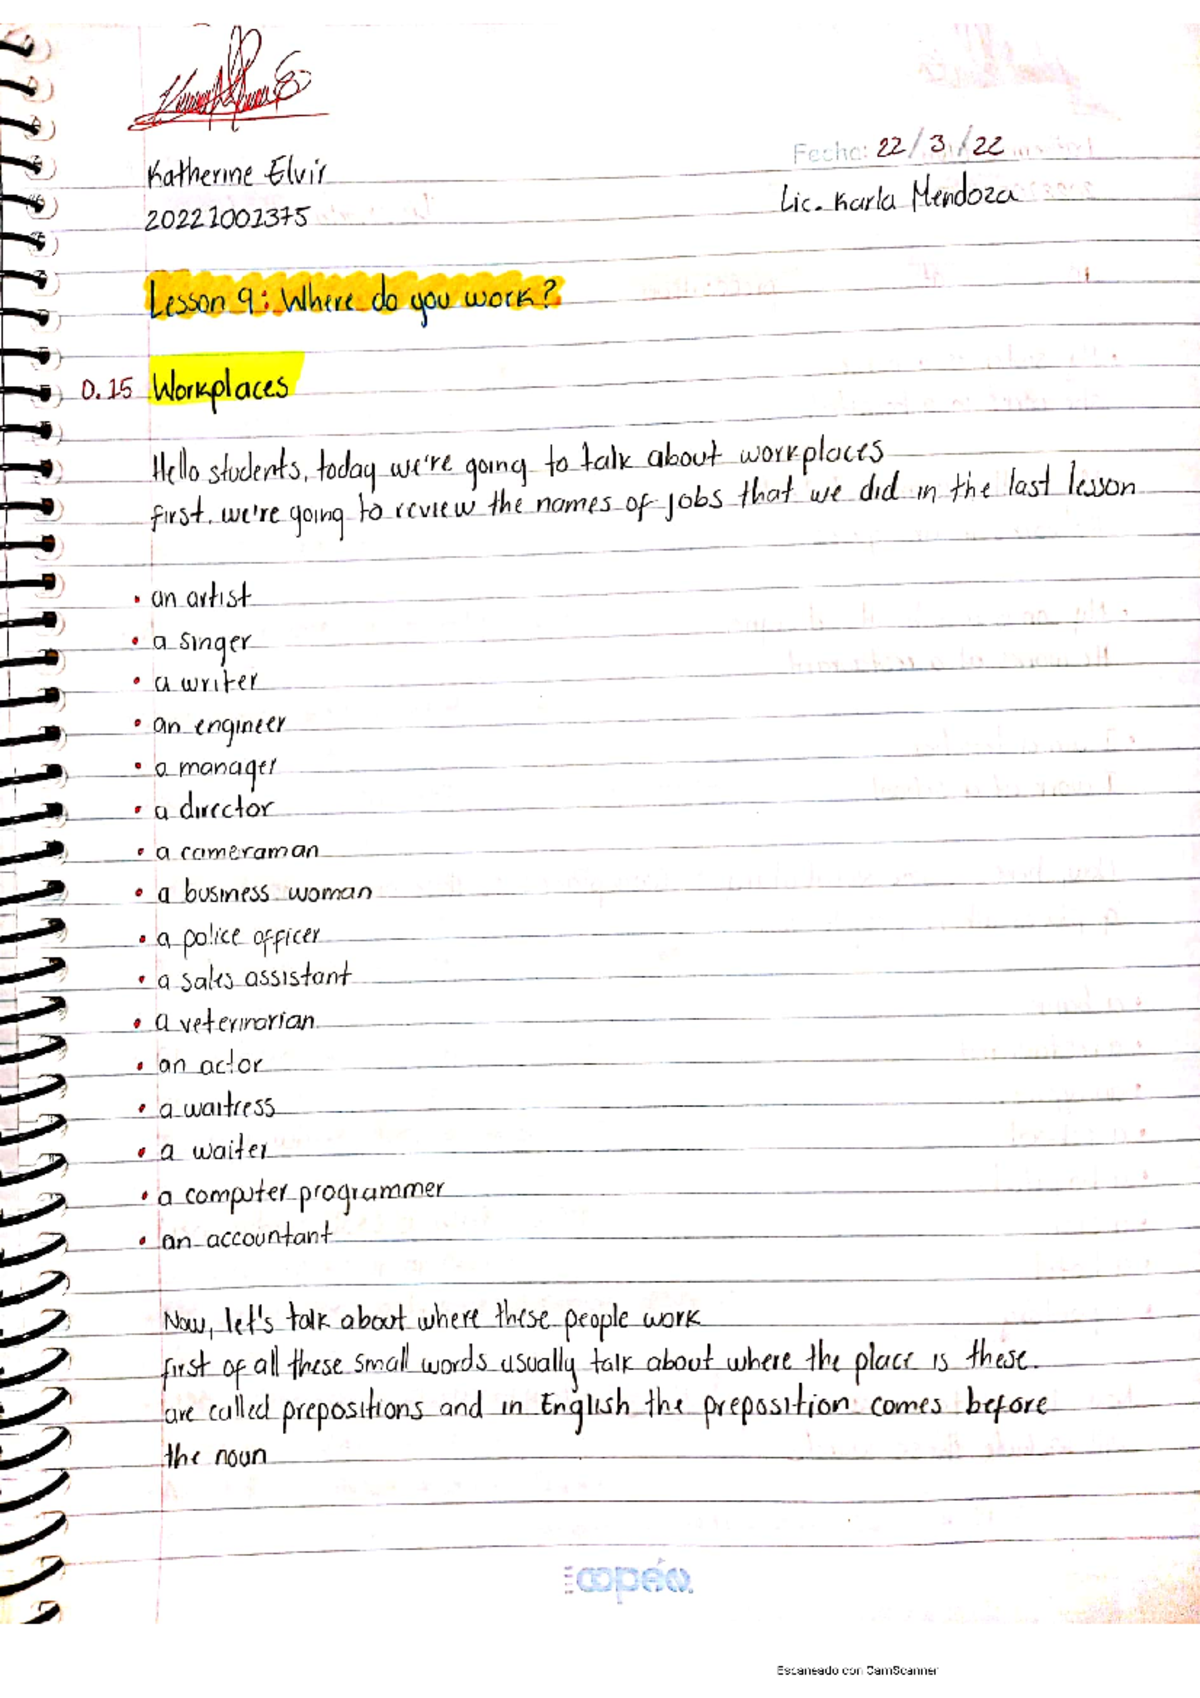 Fecha: 22/3/22
Katherine Elvir
Lic. Karla Mendoza
20221001375
Lesson 9: Where do you work?
0.15 Workplaces
Hello students, today we're going to talk about workplaces
first. we're going to review the names of jobs that we did in the last lesson
• an artist
• a singer
• a writer
• an engineer
• a manager
• a director
• a cameraman
• a business woman
• a police officer
• a sales assistant
• a veterinarian
• an actor
• a waitress
• a waiter
• a computer programmer
• an accountant
Now, let's talk about where these people work
first of all these small words usually talk about where the place is these.
are called prepositions and in English the preposition comes before
the noun
copán
Escaneado con CamScanner